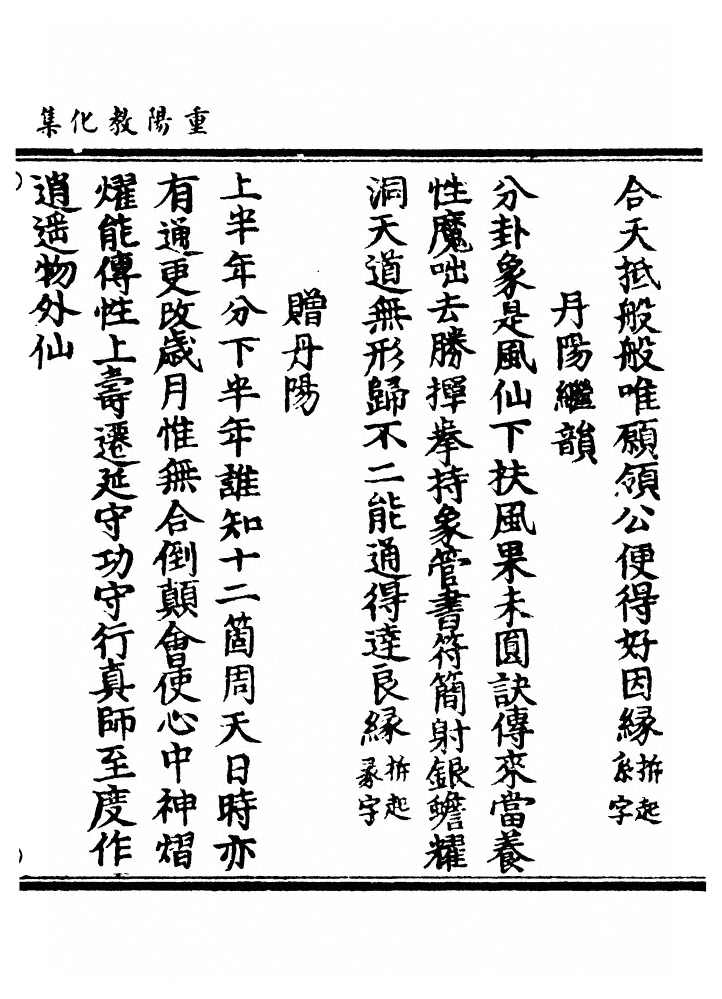 重陽教化集
合天抵般般唯願領公便得好因緣拆起糸字
丹陽繼韻
分卦象是風仙下扶風果未圓訣傳來當養
性魔咄去勝揮拳持象管書符簡射銀蟾耀
洞天道無形歸不二能通得達良緣拆起彖字
贈丹陽
上半年分下半年誰知十二箇周天日時亦
有通更改歲月惟無合倒顛會使心中神熠
燿能傳性上壽遷延守功守行真師至度作
逍遥物外仙